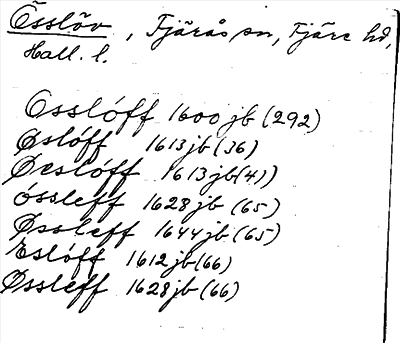 Össlöv, Fjärås sn, Fjäre hd,
Hall. l.
Osslóff 1600 jb (292)
Øslóff 1613 jb (36)
Øeslóff 1613 jb (41)
óssleff 1628 jb (65)
Øssleff 1644 jb (65)
Eslóff 1612 jb (66)
Øssleff 1628 jb (66)